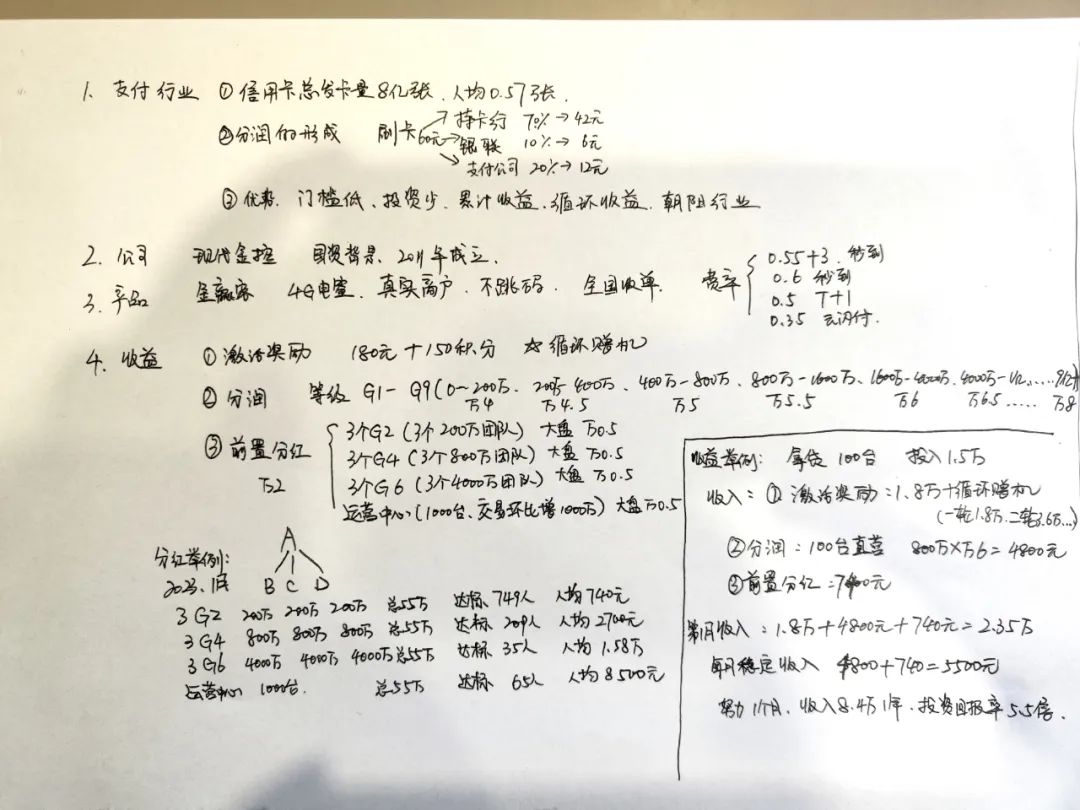 1. 支付行业 ①信用卡总发卡量8亿张、人均0.57张、
②分润的形成 刷卡60元
→持卡行 70%→42元
→银联 10%→6元
→支付公司 20%→12元
③优势 门槛低、投资少、累计收益、循环收益、朝阳行业
2. 公司 现代金控 国资背景、2011年成立、
3. 产品 金赢家 4G电签、真实商户、不跳码、全国收单、费率
0.55+3 秒到
0.6 秒到
0.5 T+1
0.35 云闪付.
4. 收益 ①激活奖励 180元+150积分 ☆循环赠机
②分润 等级 G1-G9(0~200万、200万-400万、400万-800万、800万-1600万、1600万-4000万、4000万-1亿......
万4 万4.5 万5 万5.5 万6 万6.5...... 万8
③前置分红 万2
3个G2(3个200万团队) 大盘 万0.5
3个G4(3个800万团队) 大盘 万0.5
3个G6(3个4000万团队) 大盘 万0.5
运营中心(1000台、交易环比增1000万) 大盘万0.5
分红举例:
2023.1月
A
B C D
3G2 200万 200万 200万 总55万 达标 749人 人均740元
3G4 800万 800万 800万 总55万 达标 209人 人均2700元
3G6 4000万 4000万 4000万 总55万 达标 35人 人均1.58万
运营中心 1000台. 总55万 达标 65人 人均8500元
收益举例: 拿货100台 投入1.5万
收入: ①激活奖励=1.8万+循环赠机
(一轮1.8万.二轮3.6万...)
②分润:100台直营 800万×万6=4800元
③前置分红=740元
第1月收入:1.8万+4800元+740元=2.35万
每月稳定收入 4800+740=5500元
努力1个月、收入8.4万1年、投资回报率5.5倍.